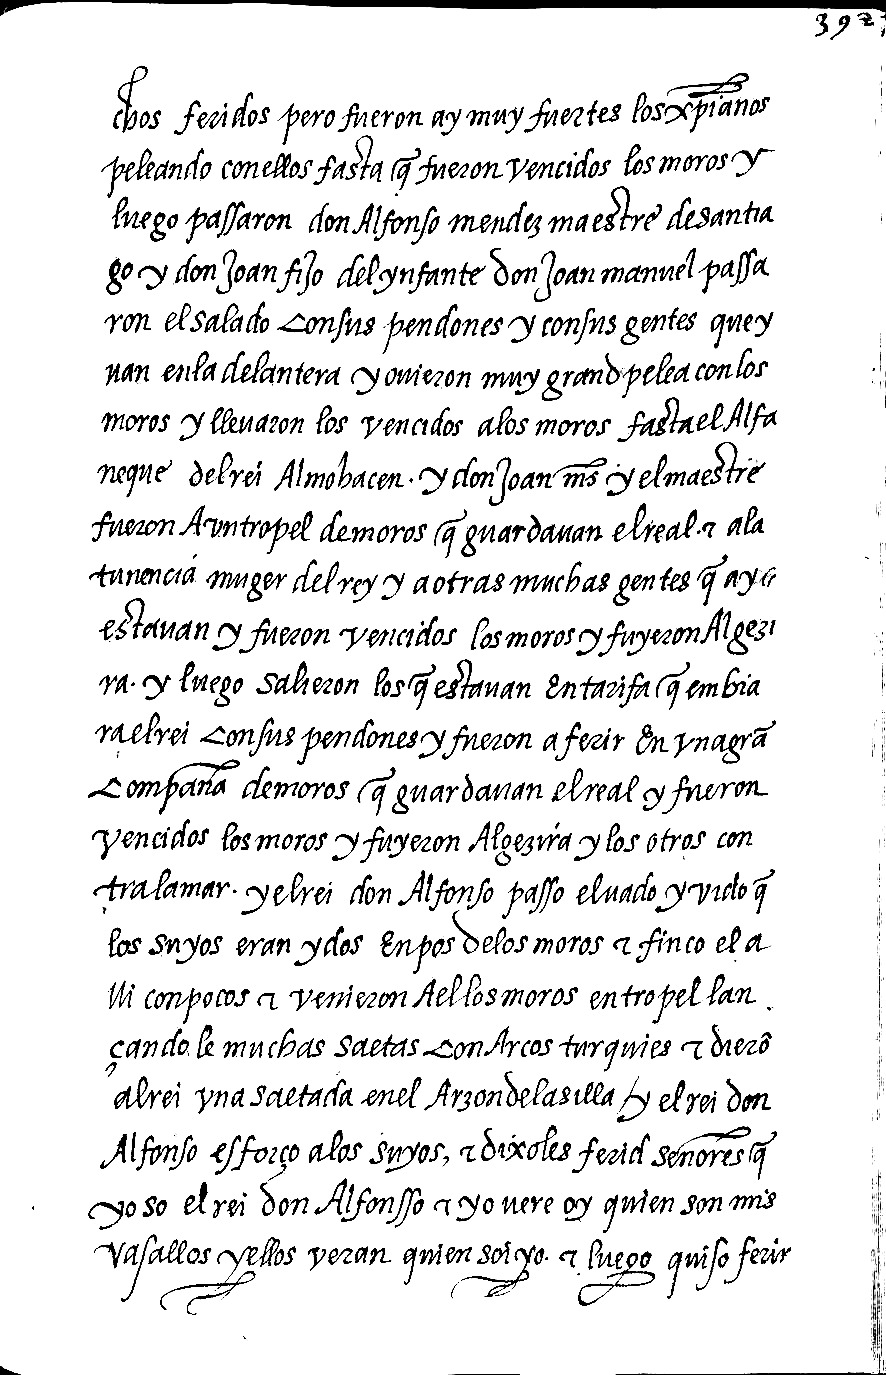 392
chos feridos pero fueron ay muy fuertes los xp̃ianos
peleando conellos fasta q̃ fueron vencidos los moros y
luego passaron don Alfonso mendez maestre desantia
go y don Joan fijo del ynfante don Joan manuel passa
ron el salado Consus pendones y consus gentes que y
uan enla delantera y ouieron muy grand pelea con los
moros y lleuaron los vencidos alos moros fasta el Alfa
neque del rei Almohacen. y don Joan m̃s y el maestre
fueron A vn tropel de moros q̃ guardauan el real. τ ala
tunencia muger del rey y a otras muchas gentes q̃ ay
estauan y fueron vencidos los moros y fuyeron Algezi
ra. y luego salieron los q̃ estauan En tarifa q̃ embia
ra el rei Consus pendones y fueron a ferir En vna grã
Compaña de moros q̃ guardauan el real y fueron
vencidos los moros y fuyeron Algezira y los otros con
tra la mar. y el rei don Alfonso passo el uado y vido q̃
los suyos eran ydos En pos delos moros τ finco el a
lli con pocos τ venieron A el los moros en tropel lan
çando le muchas saetas Con Arcos turquies τ dierõ
al rei vna saetada en el Arzon dela silla / y el rei don
Alfonso esforço alos suyos, τ dixoles ferid señores q̃
yo so el rei don Alfonsso τ yo uere oy quien son mis
vasallos y ellos veran quien soi yo. τ luego quiso ferir